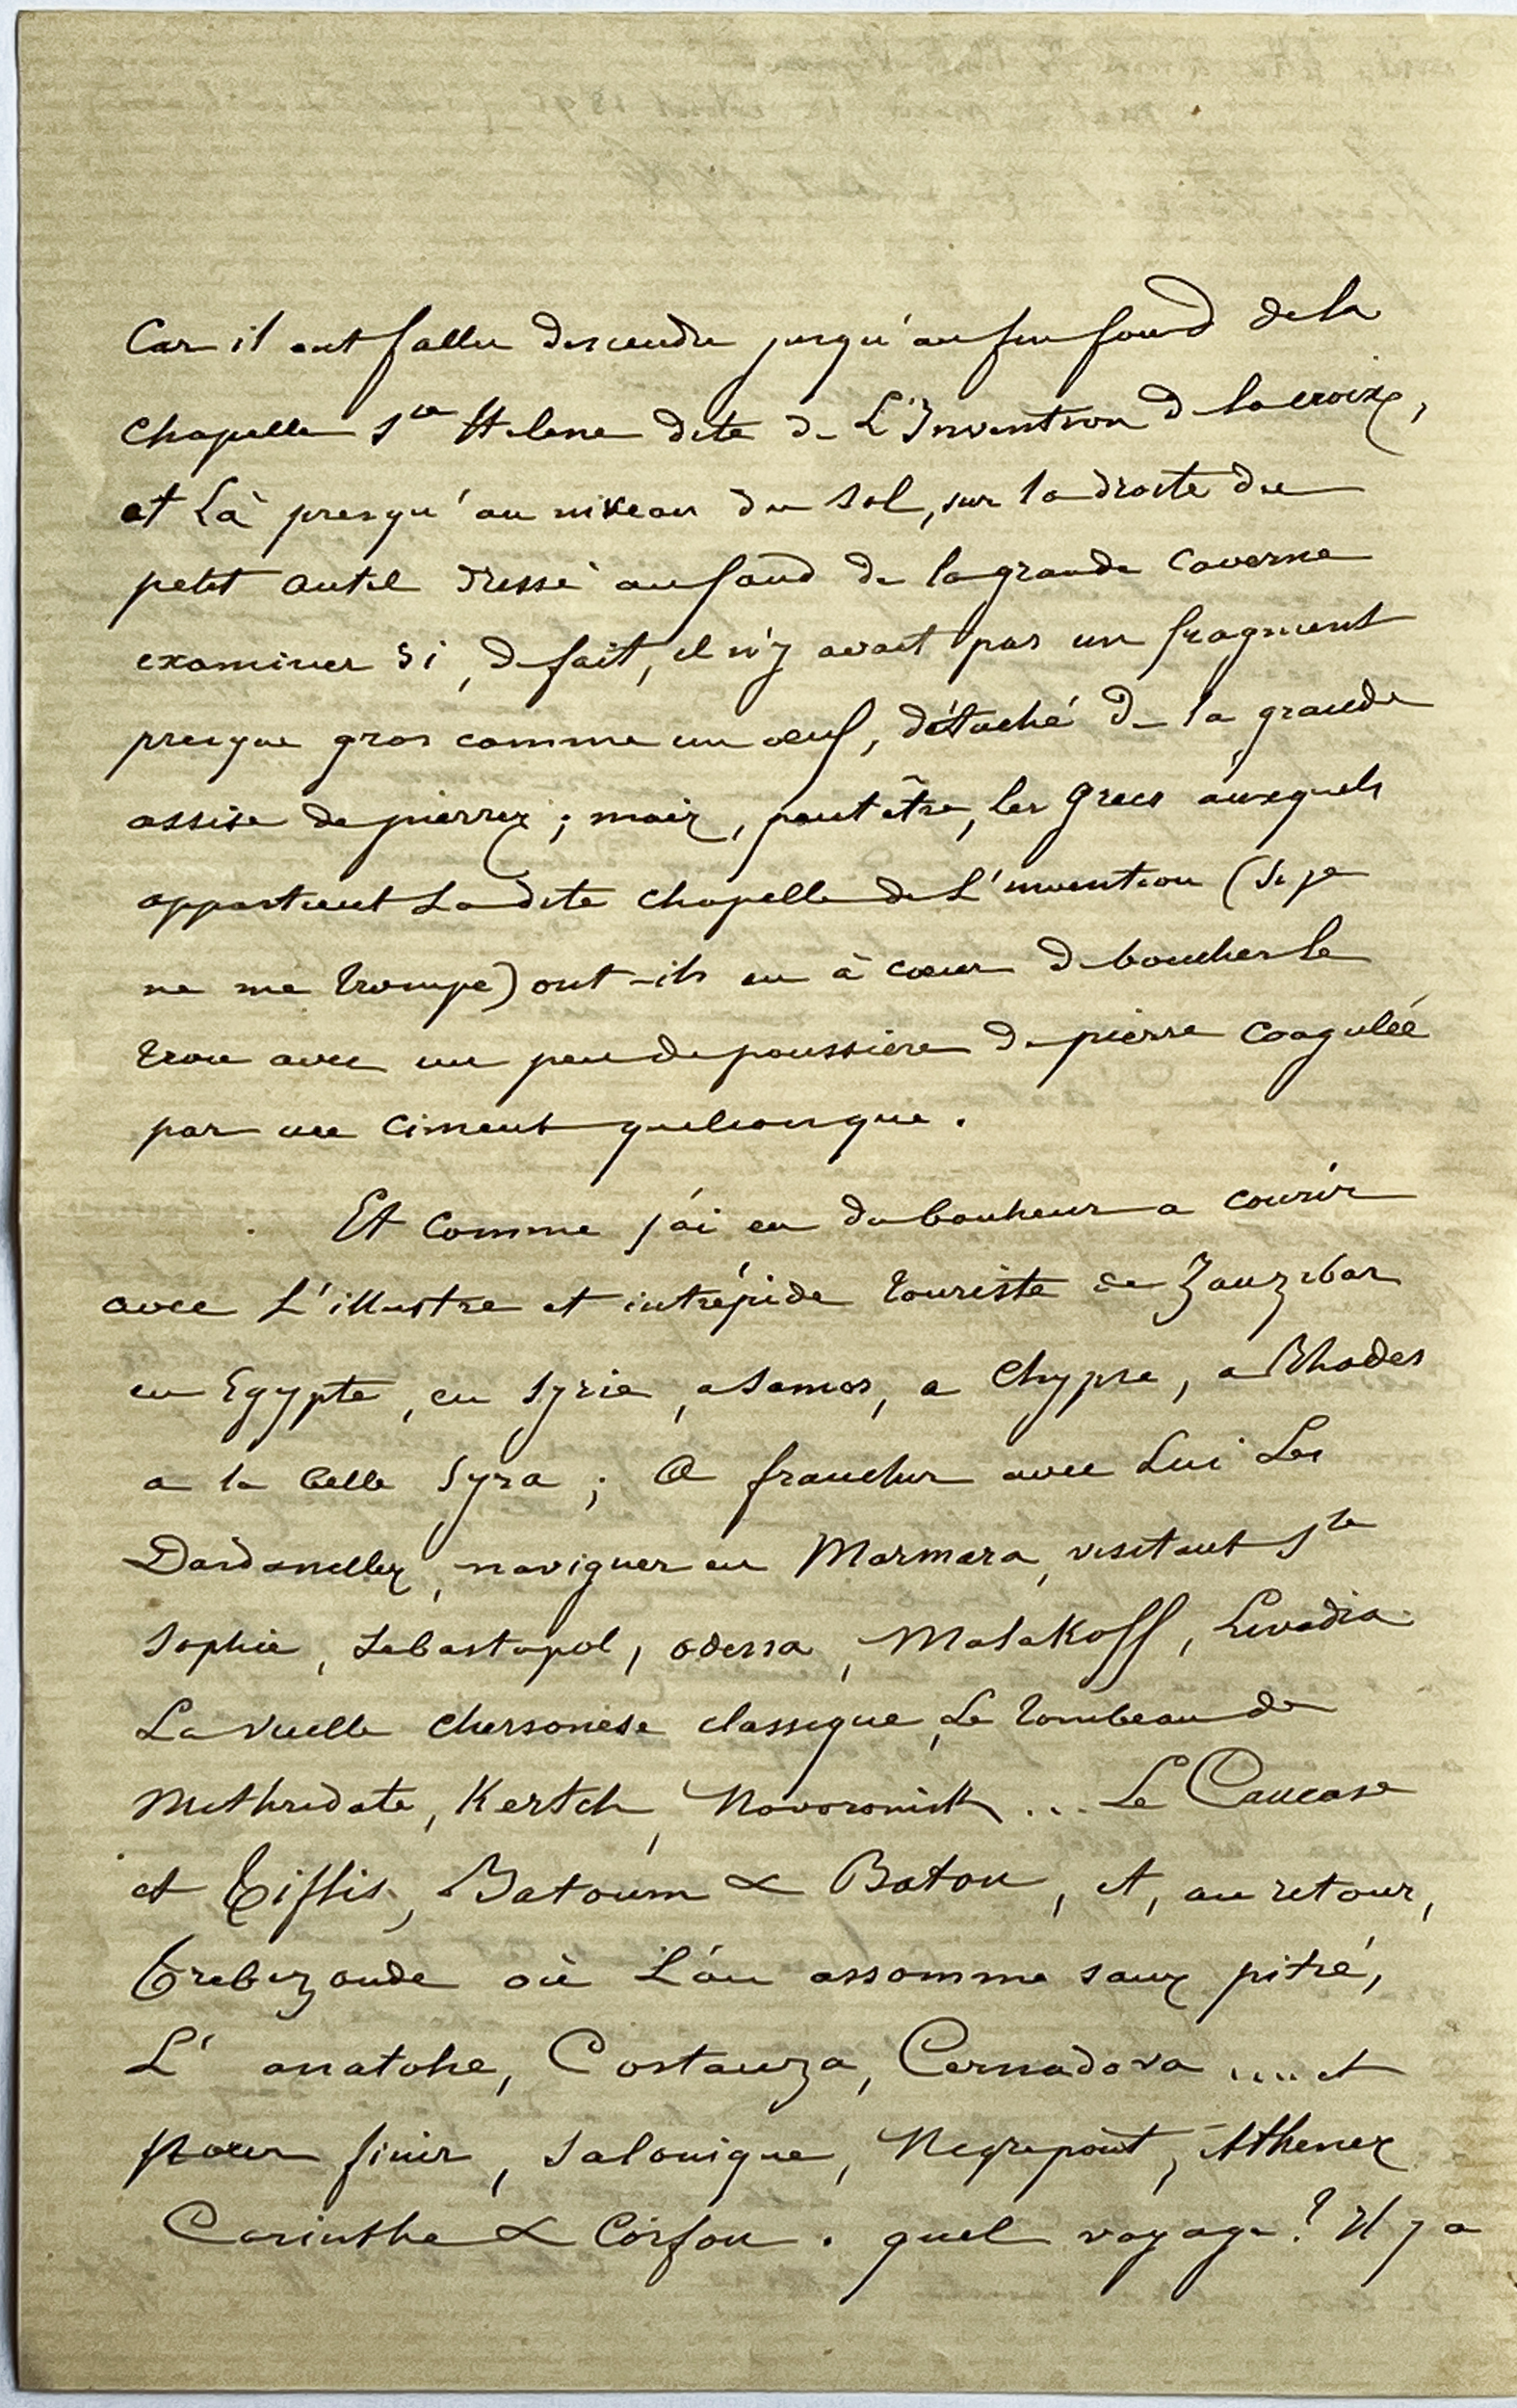 Car il eut fallu descendre jusqu'au fin fond de la
chapelle Ste Helene dite de L'Invention de la croix,
et Là presqu'au niveau du sol, sur la droite du
petit autel dressé au fond de la grande caverne
examiner si, de fait, il n'y avait pas un fragment
presque gros comme un œuf, détaché de la grande
assise de pierres ; mais, peut être, les Grecs auxquels
appartient La dite chapelle de L'invention (si je
ne me trompe) ont-ils eu à cœur de boucher le
trou avec un peu de poussière de pierre coagulée
par un ciment quelconque.
Et comme j'ai eu du bonheur a courir
avec L'illustre et intrépide touriste de Zanzibar
en Egypte, en Syrie, a Samos, a Chypre, a Rhodes
a la belle Syra ; A franchir avec Lui Les
Dardanelles, naviguer en Marmara, visitant Ste
Sophie, Sebastopol, Odessa, Malakoff, Livadia
La vieille chersonèse classique, Le tombeau de
Mithridate, Kertch, Novorossisk ... Le Caucase
et Tiflis, Batoum & Batou, et, au retour,
Trebizonde où L'on assomme sans pitié,
L' anatolie, Costanza, Cernadova .... et
pour finir, Salonique, Negrepont, Athenes
Corinthe & Corfou. quel voyage ! Il y a